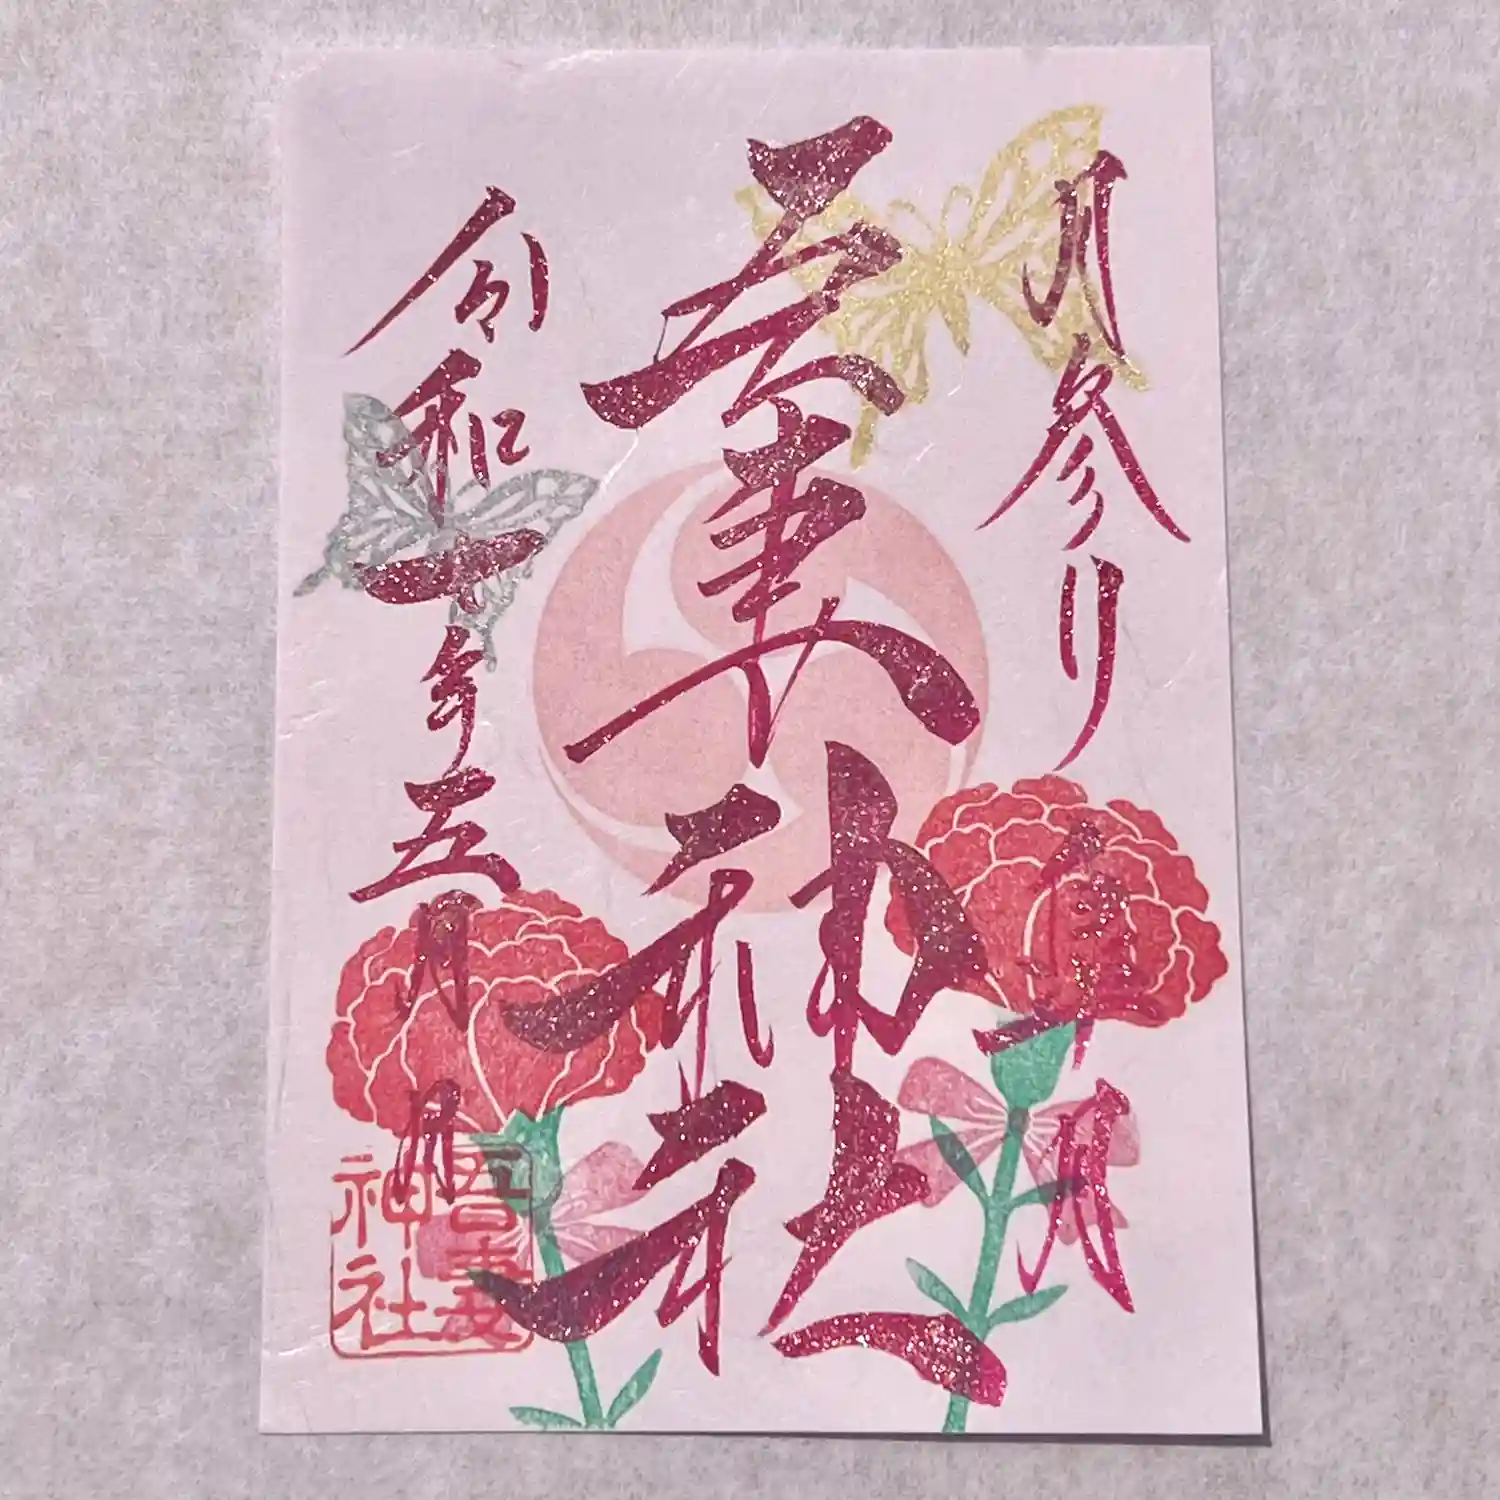 月参り 皐月
吾妻神社
令和 年五月 日
吾妻
神社